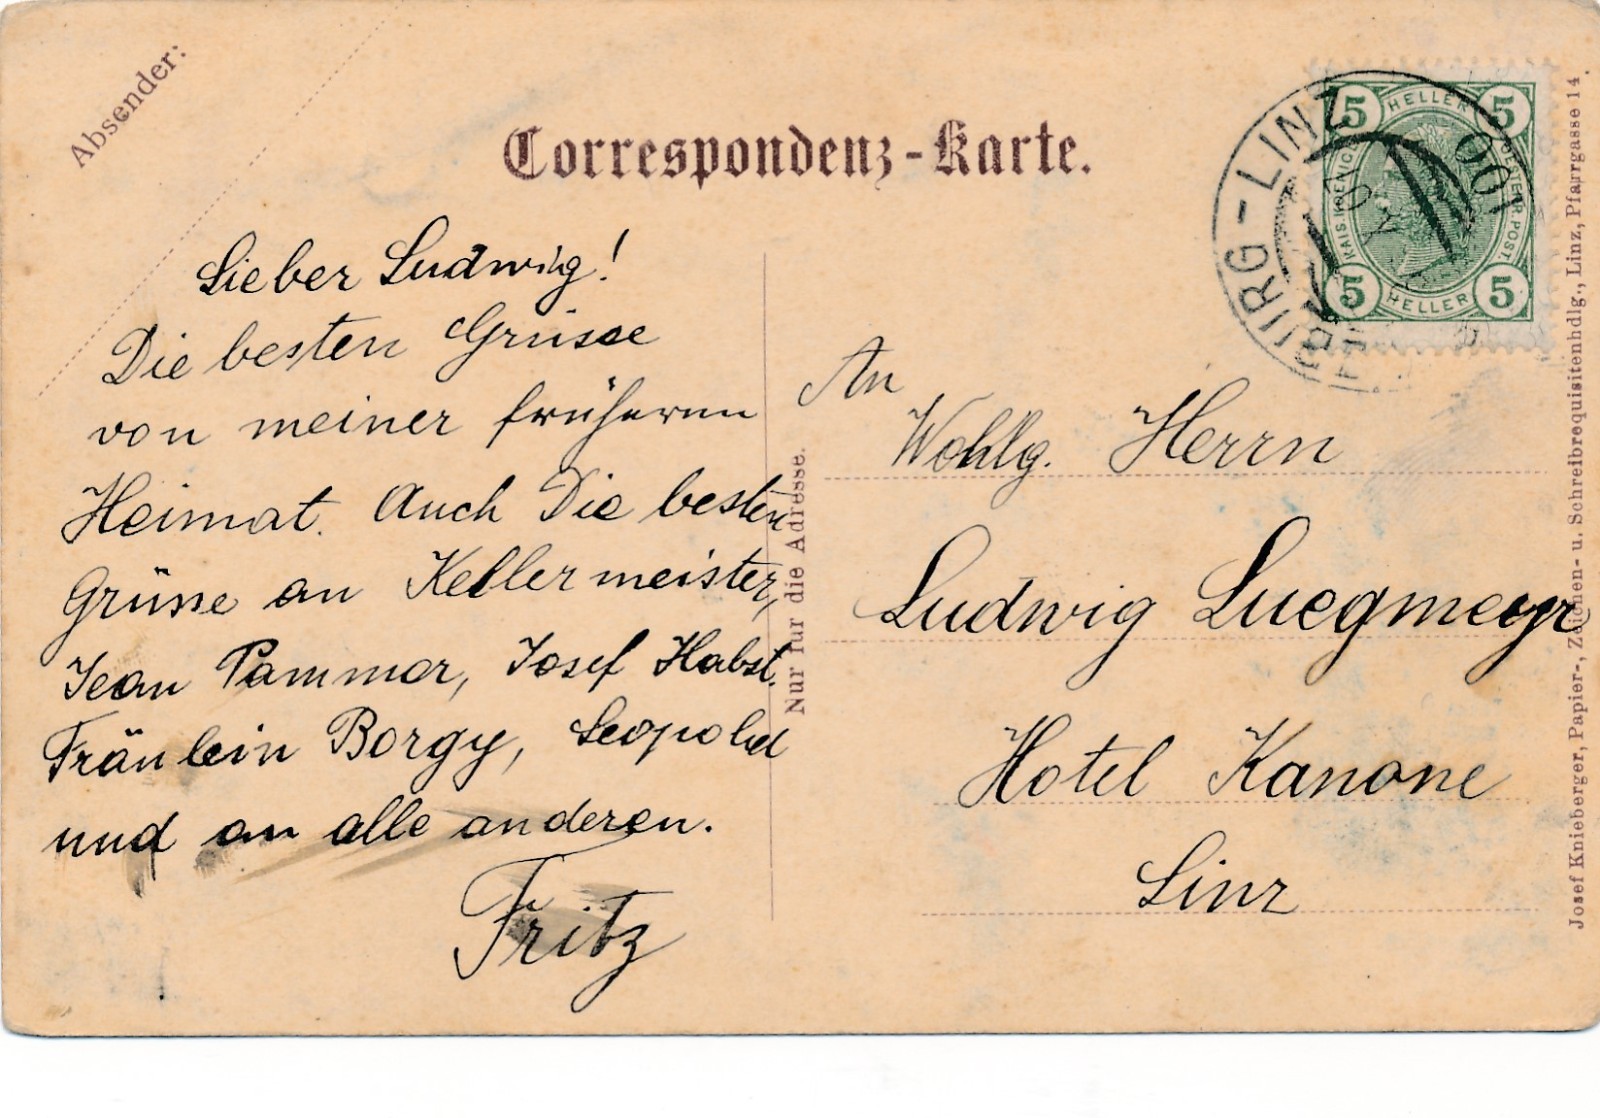 Absender:
Correspondenz-Karte.
Lieber Ludwig!
Die besten Grüsse
von meiner früheren
Heimat. Auch Die besten
Grüsse an Kellermeister,
Jean Pammer, Josef Habst.
Fräulein Borgy, Leopold
und an alle anderen.
Fritz
Nur für die Adresse.
5 HELLER 5
KAIS. KOENIG. OESTERR. POST.
5 HELLER 5
LINZ
100
An
Wohlg. Herrn
Ludwig Luegmeyr
Hotel Kanone
Linz
Josef Knieberger, Papier-, Zeichen- u. Schreibrequisitenhdlg., Linz, Pfarrgasse 14.